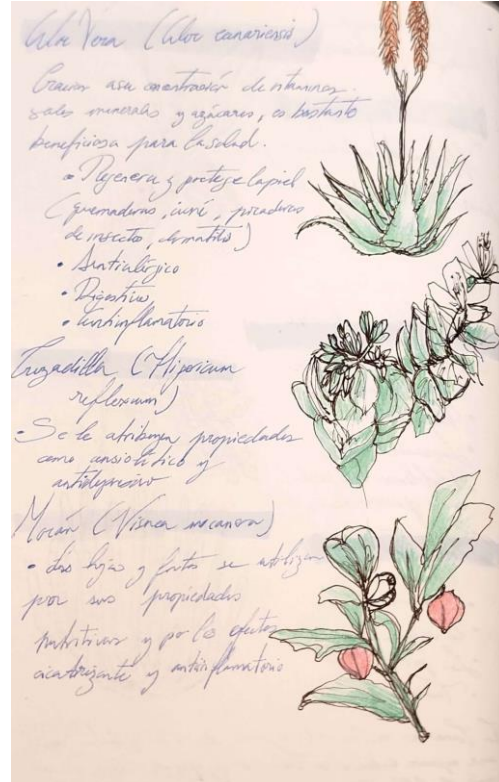 Aloe Vera (Aloe canariensis)
Gracias a su concentración de vitaminas,
sales minerales y azúcares, es bastante
beneficiosa para la salud.
• Regenera y protege la piel
(quemaduras, , picaduras
de insecto, dermatitis)
• Antialérgico
• Digestivo
• Antiinflamatorio
Cruzadilla (Hipericum
reflexum)
• Se le atribuyen propiedades
como ansiolítico y
antidepresivo
Mocán (Visnea mocanera)
• Las hojas y frutos se utilizan
por sus propiedades
nutritivas y por los efectos
cicatrizante y antiinflamatorio